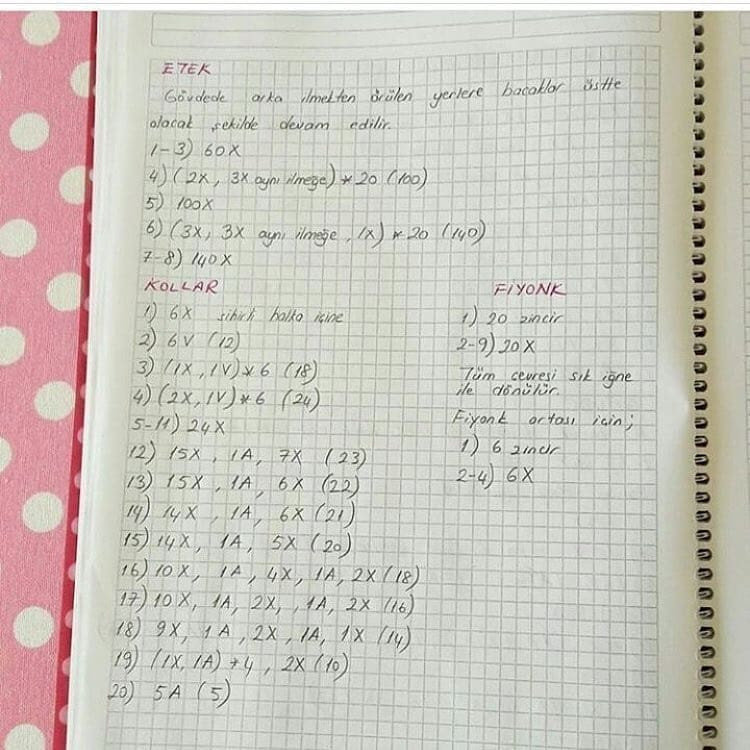 ETEK
Gövdede arka ilmekten örülen yerlere bacaklar üstte
olacak şekilde devam edilir.
1-3) 60X
4) (2X, 3X aynı ilmeğe) * 20 (100)
5) 100X
6) (3X, 3X aynı ilmeğe, 1X) * 20 (140)
7-8) 140X
KOLLAR
1) 6X sihirli halka içine
2) 6V (12)
3) (1X, 1V) * 6 (18)
4) (2X, 1V) * 6 (24)
5-11) 24X
12) 15X, 1A, 7X (23)
13) 15X, 1A, 6X (22)
14) 14X, 1A, 6X (21)
15) 14X, 1A, 5X (20)
16) 10X, 1A, 4X, 1A, 2X (18)
17) 10X, 1A, 2X, , 1A, 2X (16)
18) 9X, 1A, 2X, 1A, 1X (14)
19) (1X, 1A) * 4, 2X (10)
20) 5A (5)
FİYONK
1) 20 zincir
2-9) 20X
Tüm çevresi sık iğne
ile dönülür.
Fiyonk ortası için;
1) 6 zincir
2-4) 6X